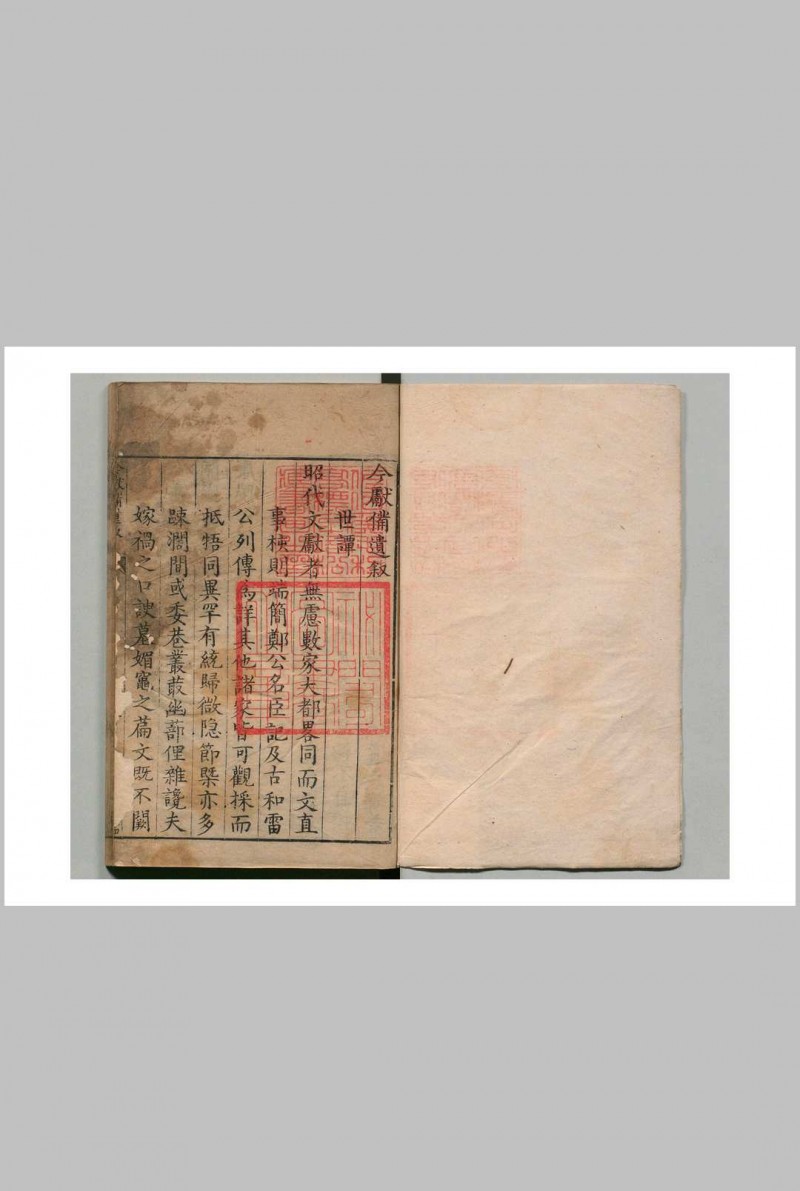 今獻備遺叙
世譚
昭代文獻者無慮數家大都畧同而文直
事核則端簡鄭公名臣記及古和雷
公列傳為詳其他諸家皆可觀採而
抵牾同異罕有統歸微隐節槩亦多
踈濶間或委巷叢蕞幽蔀俚雜讒夫
嫁禍之口諛墓媚竈之萹文既不闕